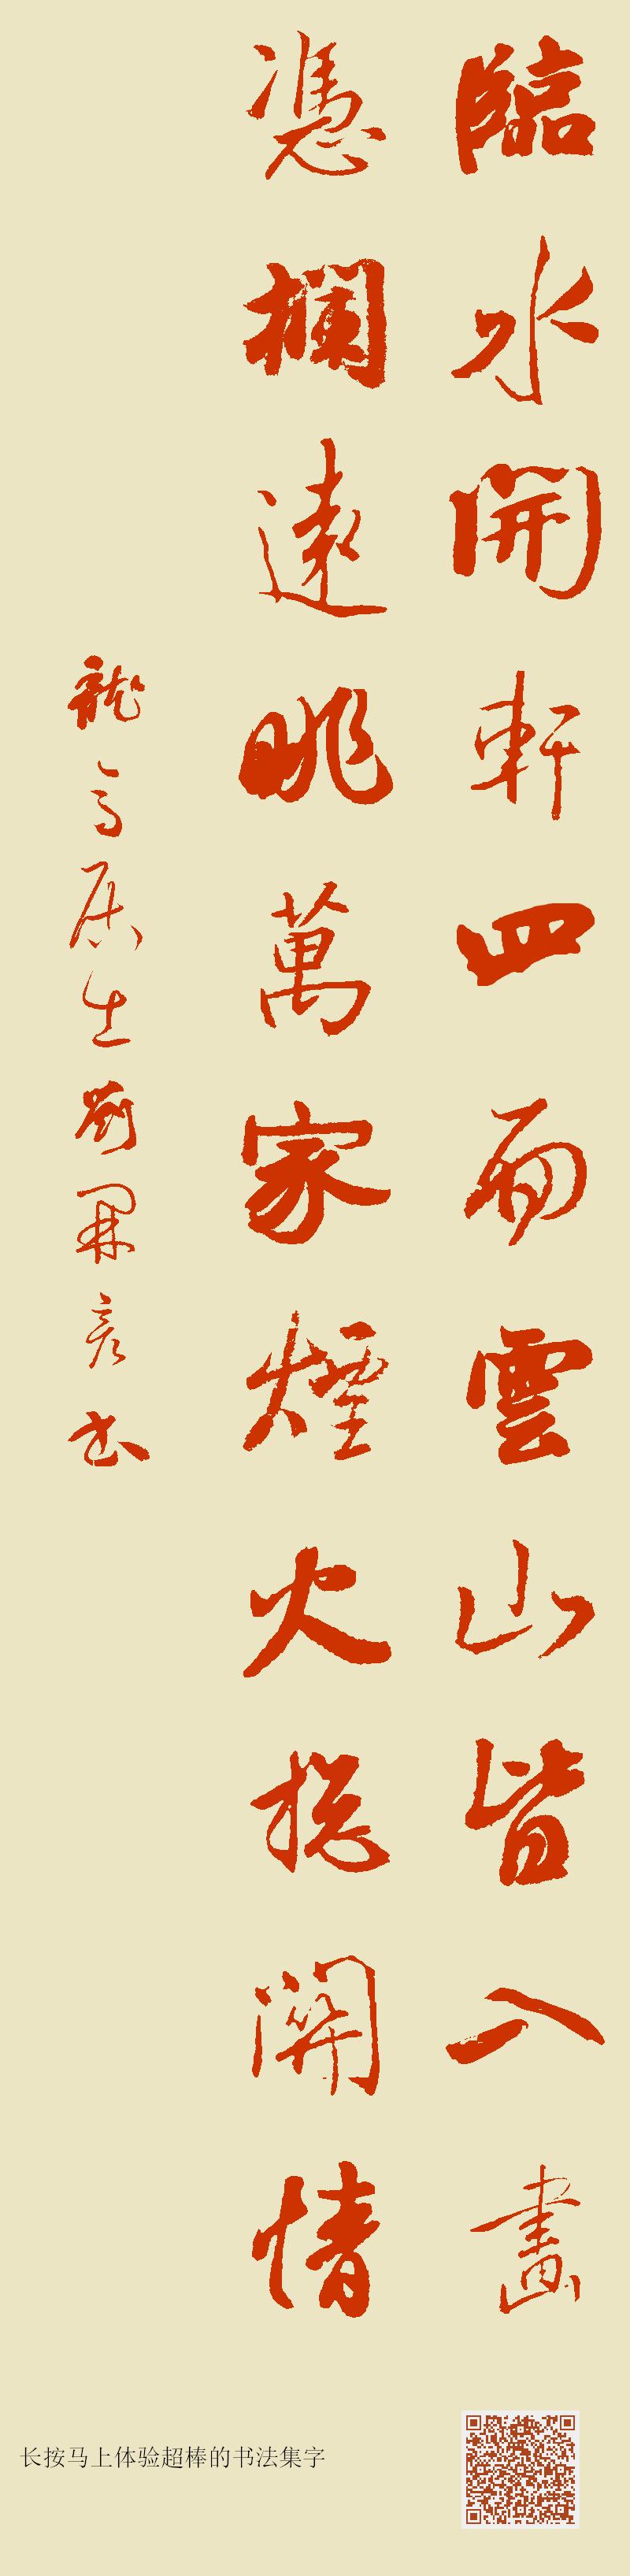 臨水開軒四面雲山皆入畫
憑欄遠眺萬家煙火總關情
龍居生劉彥書
长按马上体验超棒的书法集字